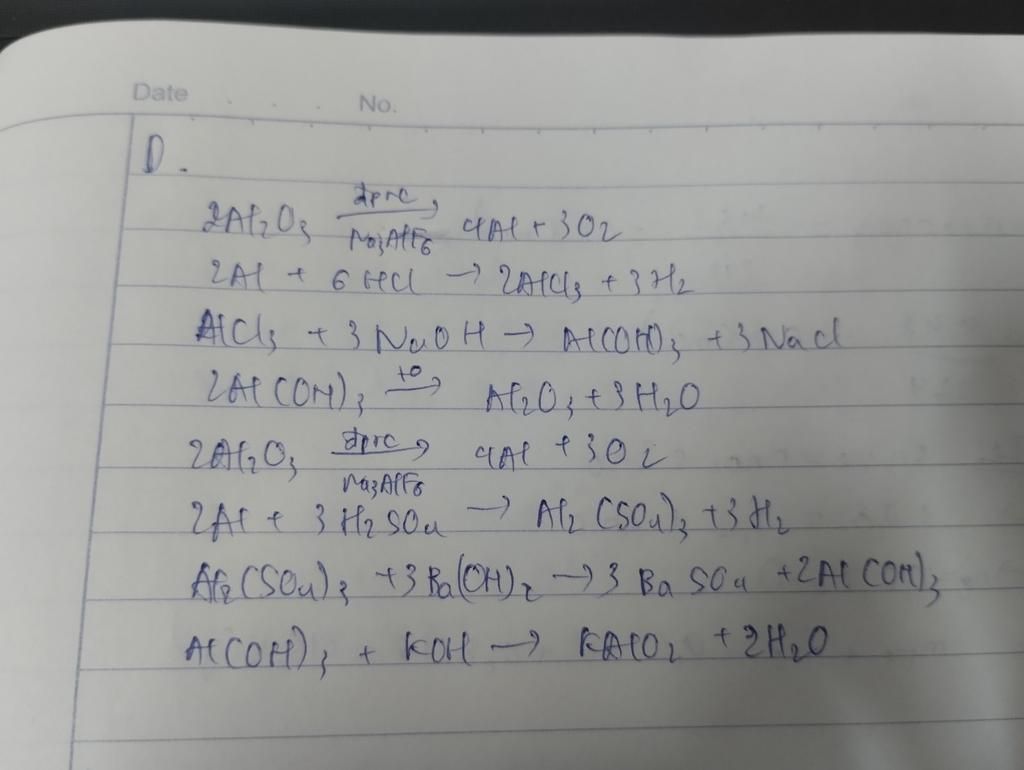 Date No.
D.
2Al2O3 đpnc → Na3AlF6 4Al + 3O2
2Al + 6HCl → 2AlCl3 + 3H2
AlCl3 + 3NaOH → Al(OH)3 + 3NaCl
2Al(OH)3 t0 → Al2O3 + 3H2O
2Al2O3 đpnc → Na3AlF6 4Al + 3O2
2Al + 3H2SO4 → Al2(SO4)3 + 3H2
Al2(SO4)3 + 3Ba(OH)2 → 3BaSO4 + 2Al(OH)3
Al(OH)3 + KOH → KAlO2 + 2H2O